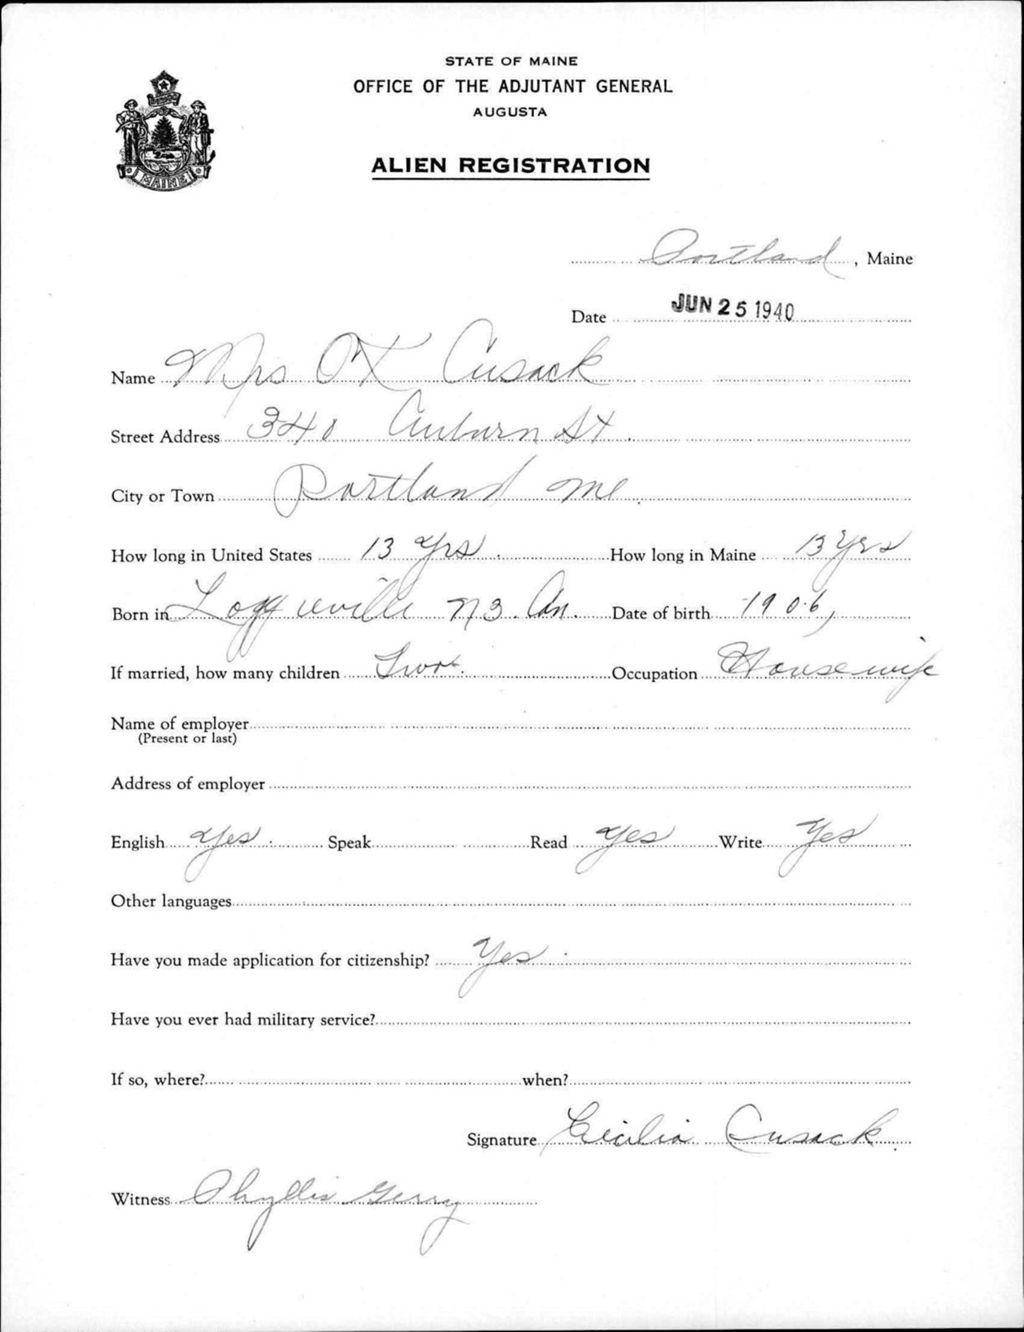 STATE OF MAINE
OFFICE OF THE ADJUTANT GENERAL
AUGUSTA
MAINE
ALIEN REGISTRATION
Portland, Maine
Date JUN 25 1940
Name Mrs O K Cusack
Street Address 340 Auburn St.
City or Town Portland Me.
How long in United States 13 Yrs. How long in Maine 13 Yrs
Born in Loggieville N B. Can. Date of birth 1906,
If married, how many children Two. Occupation Housewife
Name of employer
(Present or last)
Address of employer
English Yes. Speak Read Yes Write Yes
Other languages
Have you made application for citizenship? Yes.
Have you ever had military service?
If so, where? when?
Signature Cecilia Cusack.
Witness Phyllis Gerry